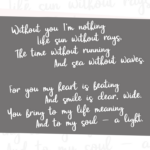 Without you I'm nothing
Like sun without rays.
The time without running
And sea without waves.
For you my heart is beating
And smile is clear, wide.
You bring to my life meaning
And to my soul — a light.